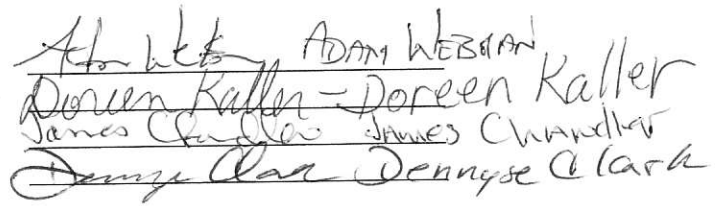 Adam Webman ADAM WEBMAN
Doreen Kaller - Doreen Kaller
James Chandler JAMES CHANDLER
Dennyse Clark Dennyse Clark